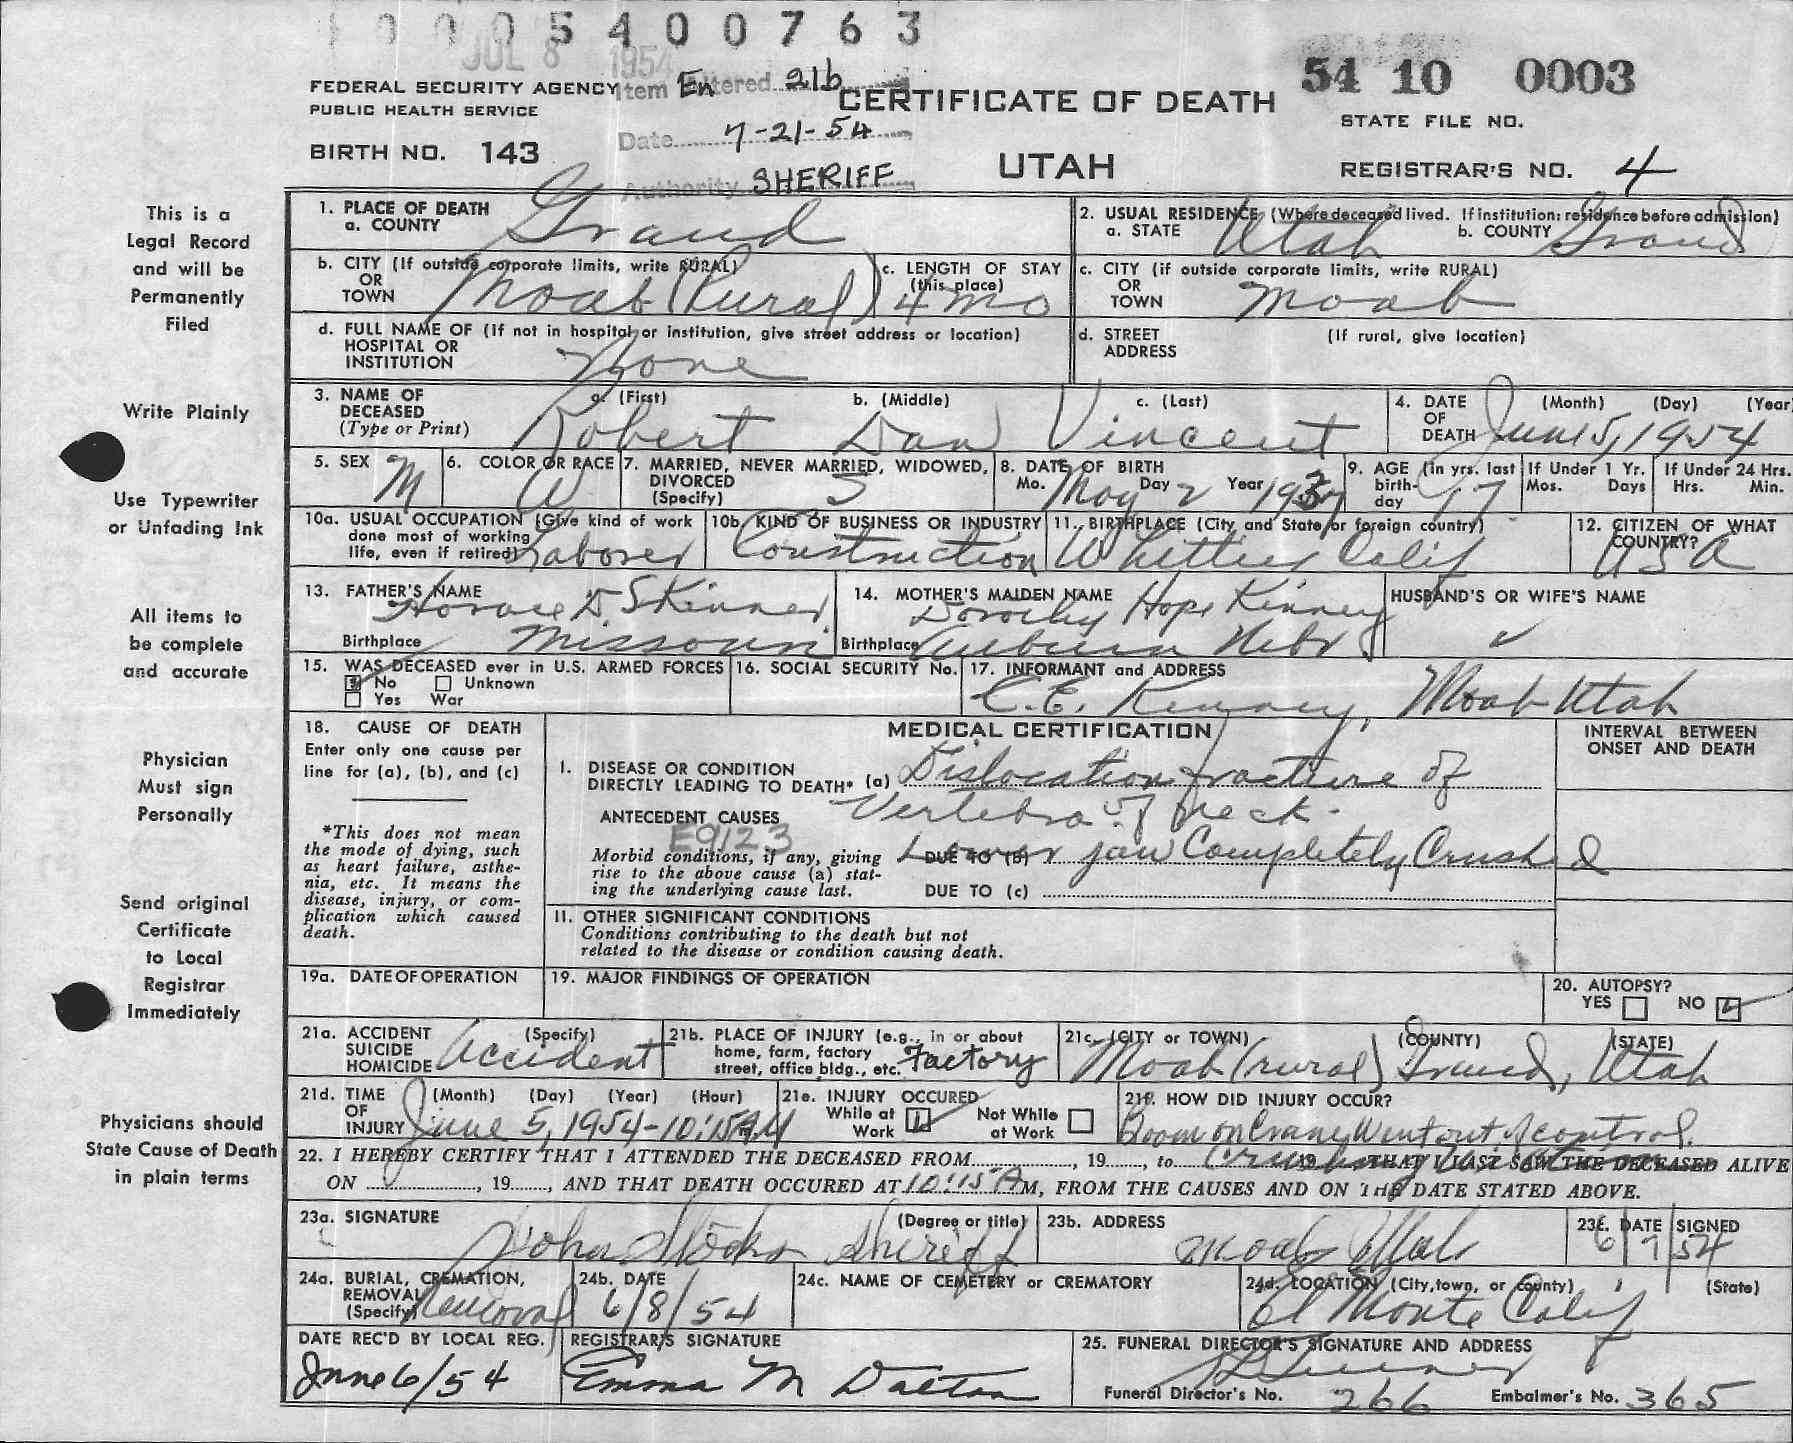 0005400763
JUL 8 1954
Item Entered 21b
Date 7-21-54
Authority SHERIFF
FEDERAL SECURITY AGENCY
PUBLIC HEALTH SERVICE
BIRTH NO. 143
CERTIFICATE OF DEATH
UTAH
54 10 0003
STATE FILE NO.
REGISTRAR'S NO. 4
This is a
Legal Record
and will be
Permanently
Filed
Write Plainly
Use Typewriter
or Unfading Ink
All items to
be complete
and accurate
Physician
Must sign
Personally
Send original
Certificate
to Local
Registrar
Immediately
Physicians should
State Cause of Death
in plain terms
1. PLACE OF DEATH
a. COUNTY Grand
2. USUAL RESIDENCE (Where deceased lived. If institution: residence before admission)
a. STATE Utah b. COUNTY Grand
b. CITY (If outside corporate limits, write RURAL)
OR
TOWN Moab (Rural)
c. LENGTH OF STAY
(this place) 4 mo
c. CITY (if outside corporate limits, write RURAL)
OR
TOWN Moab
d. FULL NAME OF (If not in hospital or institution, give street address or location)
HOSPITAL OR
INSTITUTION None
d. STREET (If rural, give location)
ADDRESS
3. NAME OF DECEASED
(Type or Print)
a. (First) b. (Middle) c. (Last)
Robert Dan Vincent
4. DATE OF DEATH (Month) (Day) (Year)
June 5, 1954
5. SEX M
6. COLOR OR RACE W
7. MARRIED, NEVER MARRIED, WIDOWED,
DIVORCED
(Specify) S
8. DATE OF BIRTH
Mo. May Day 2 Year 1937
9. AGE (In yrs. last
birth-
day 17
If Under 1 Yr.
Mos. Days
If Under 24 Hrs.
Hrs. Min.
10a. USUAL OCCUPATION (Give kind of work
done most of working
life, even if retired) Laborer
10b. KIND OF BUSINESS OR INDUSTRY
Construction
11. BIRTHPLACE (City and State or foreign country)
Whittier Calif
12. CITIZEN OF WHAT
COUNTRY?
USA
13. FATHER'S NAME
Horace D Skinner
Birthplace Missouri
14. MOTHER'S MAIDEN NAME
Dorothy Hope Kinney
Birthplace Auburn Nebr
HUSBAND'S OR WIFE'S NAME
15. WAS DECEASED ever in U.S. ARMED FORCES
No Unknown
Yes War
16. SOCIAL SECURITY No.
17. INFORMANT and ADDRESS
C.E. Kinney, Moab Utah
18. CAUSE OF DEATH
Enter only one cause per
line for (a), (b), and (c)
*This does not mean
the mode of dying, such
as heart failure, asthe-
nia, etc. It means the
disease, injury, or com-
plication which caused
death.
MEDICAL CERTIFICATION
INTERVAL BETWEEN
ONSET AND DEATH
I. DISEASE OR CONDITION
DIRECTLY LEADING TO DEATH* (a) Dislocation fracture of
Vertebra of neck.
ANTECEDENT CAUSES
E912.3
Morbid conditions, if any, giving
rise to the above cause (a) stat-
ing the underlying cause last.
DUE TO (b) Lower jaw Completely Crushed
DUE TO (c)
II. OTHER SIGNIFICANT CONDITIONS
Conditions contributing to the death but not
related to the disease or condition causing death.
19a. DATE OF OPERATION
19. MAJOR FINDINGS OF OPERATION
20. AUTOPSY?
YES NO
21a. ACCIDENT (Specify)
SUICIDE
HOMICIDE Accident
21b. PLACE OF INJURY (e.g., in or about
home, farm, factory
street, office bldg., etc. Factory
21c. (CITY or TOWN) (COUNTY) (STATE)
Moab (rural) Grand, Utah
21d. TIME (Month) (Day) (Year) (Hour)
OF
INJURY June 5, 1954-10:15 AM
21e. INJURY OCCURED
While at Work
Not While at Work
21f. HOW DID INJURY OCCUR?
Boom on Crane Went out of control.
Crushing
22. I HEREBY CERTIFY THAT I ATTENDED THE DECEASED FROM, 19, to, 19, THAT I LAST SAW THE DECEASED ALIVE
ON, 19, AND THAT DEATH OCCURED AT 10:15 AM, FROM THE CAUSES AND ON THE DATE STATED ABOVE.
23a. SIGNATURE (Degree or title)
John Stocks Sheriff
23b. ADDRESS
Moab Utah
23c. DATE SIGNED
6/7/54
24a. BURIAL, CREMATION,
REMOVAL
(Specify) Removal
24b. DATE
6/8/54
24c. NAME OF CEMETERY or CREMATORY
24d. LOCATION (City, town, or county) (State)
El Monte Calif
DATE REC'D BY LOCAL REG.
June 6/54
REGISTRAR'S SIGNATURE
Emma M Dalton
25. FUNERAL DIRECTOR'S SIGNATURE AND ADDRESS
Funeral Director's No. 266
Embalmer's No. 365